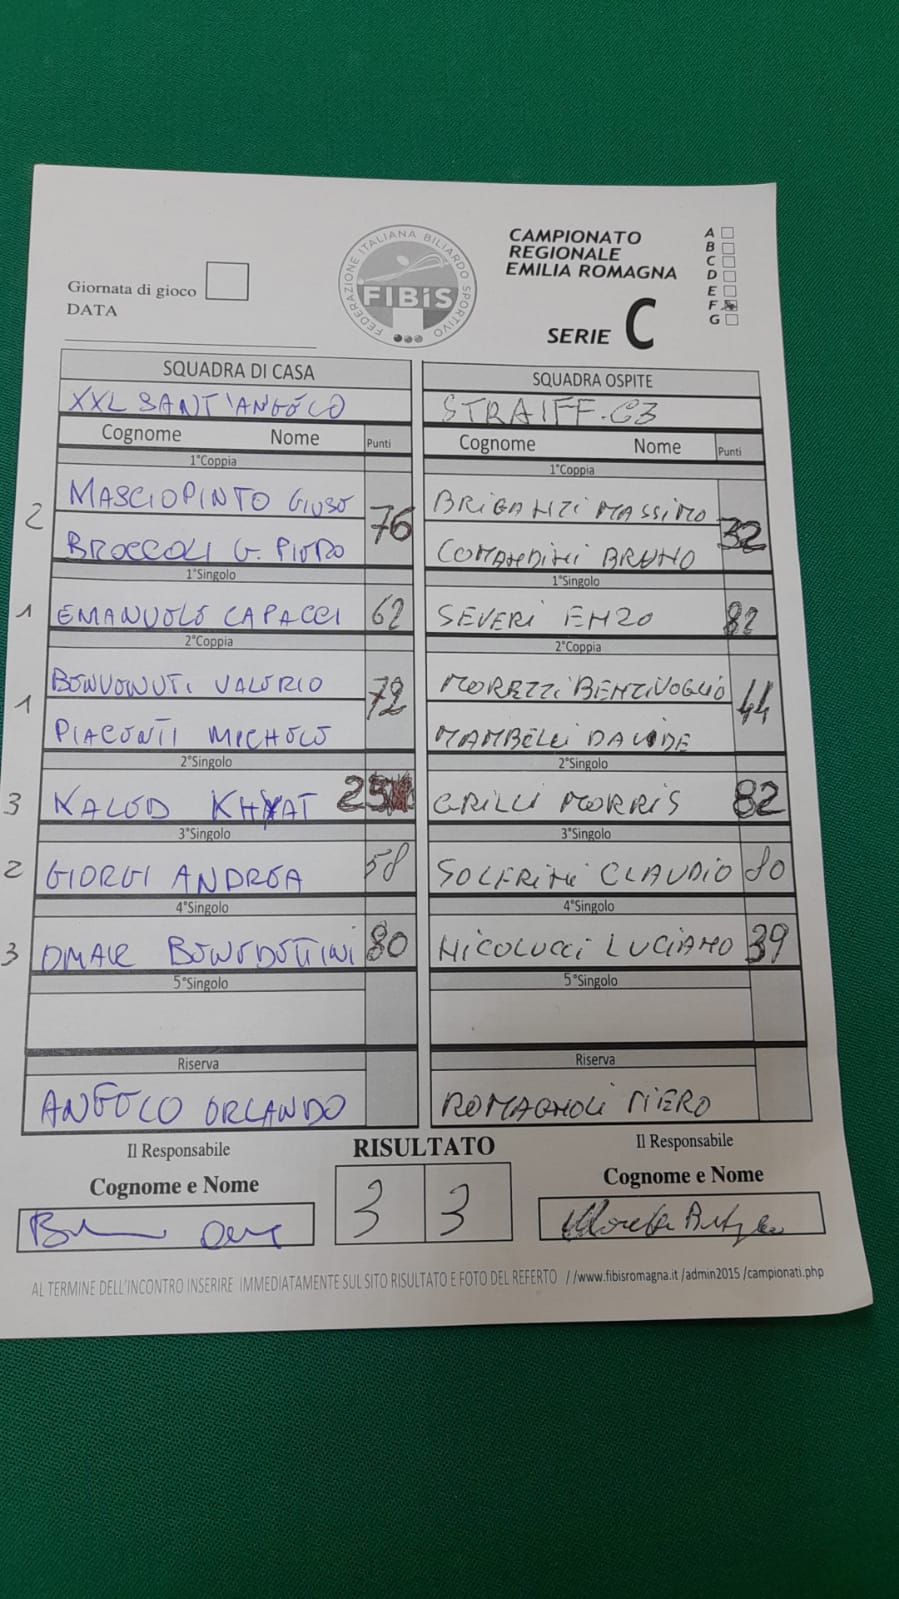 Giornata di gioco
DATA
FEDERAZIONE ITALIANA BILIARDO SPORTIVO
FIBiS
CAMPIONATO
REGIONALE
EMILIA ROMAGNA
SERIE C
A
B
C
D
E
F
G
SQUADRA DI CASA
SQUADRA OSPITE
XXL SANT'ANGELO
STRAIFF.C3
Cognome Nome Punti
Cognome Nome Punti
1°Coppia
1°Coppia
2 MASCIOPINTO GIUSE 76
BROCCOLI G. PIERO
BRIGANTI MASSIMO 32
COMANDINI BRUNO
1°Singolo
1°Singolo
1 EMANUELE CAPACCI 62
SEVERI ENZO 82
2°Coppia
2°Coppia
1 BENVENUTI VALERIO 72
PIACENTI MICHELE
MORETTI BENTIVOGLIO 44
MAMBELLI DAVIDE
2°Singolo
2°Singolo
3 KALED KHYAT 25
GRILLI MORRIS 82
3°Singolo
3°Singolo
2 GIORGI ANDREA 58
SOLFRINI CLAUDIO 80
4°Singolo
4°Singolo
3 OMAR BENEDETTINI 80
NICOLUCCI LUCIANO 39
5°Singolo
5°Singolo
Riserva
Riserva
ANGELO ORLANDO
ROMAGNOLI PIERO
Il Responsabile
RISULTATO
Il Responsabile
Cognome e Nome
3 3
Cognome e Nome
AL TERMINE DELL'INCONTRO INSERIRE IMMEDIATAMENTE SUL SITO RISULTATO E FOTO DEL REFERTO //www.fibisromagna.it /admin2015 /campionati.php